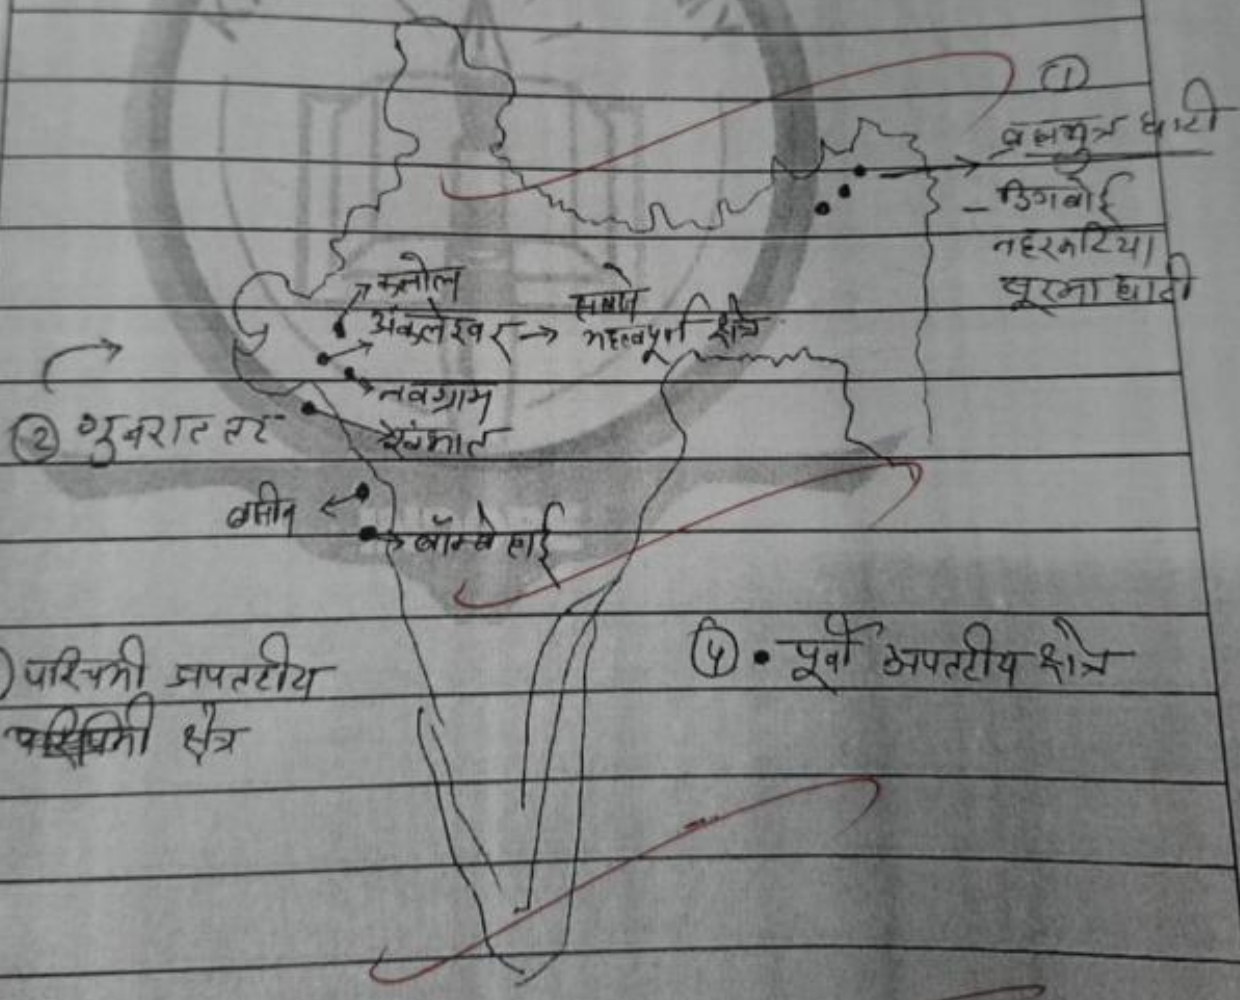 ①
ब्रह्मपुत्र घाटी
- डिगबोई
नहरकटिया
सूरमा घाटी
कलोल
अंकलेश्वर → सबसे
महत्वपूर्ण क्षेत्र
नवग्राम
② गुजरात तट
बसीन
बॉम्बे हाई
) पश्चिमी अपतटीय
क्षेत्र
④ • पूर्वी अपतटीय क्षेत्र